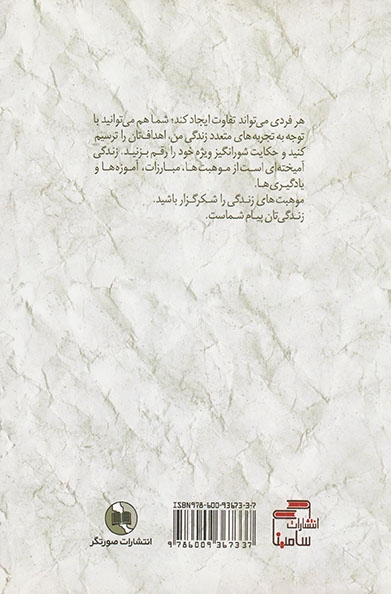 هر فردی می‌تواند تفاوت ایجاد کند؛ شما هم می‌توانید با
توجه به تجربه‌های متعدد زندگی من، اهداف‌تان را ترسیم
کنید و حکایت شورانگیز ویژه خود را رقم بزنید. زندگی
آمیخته‌ای است از موهبت‌ها، مبارزات، آموزه‌ها و
یادگیری‌ها.
موهبت‌های زندگی را شکرگزار باشید.
زندگی‌تان پیام شماست.
ISBN978-600-93673-3-7
9786009367337
انتشارات صورتگر
انتشارات
سامینا